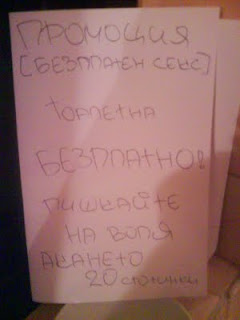 ПРОМОЦИЯ
[БЕЗПЛАТЕН СЕКС]
ТОАЛЕТНА
БЕЗПЛАТНО!
ПИШКАЙТЕ
НА ВОЛЯ
АКАНЕТО
20 стотинки